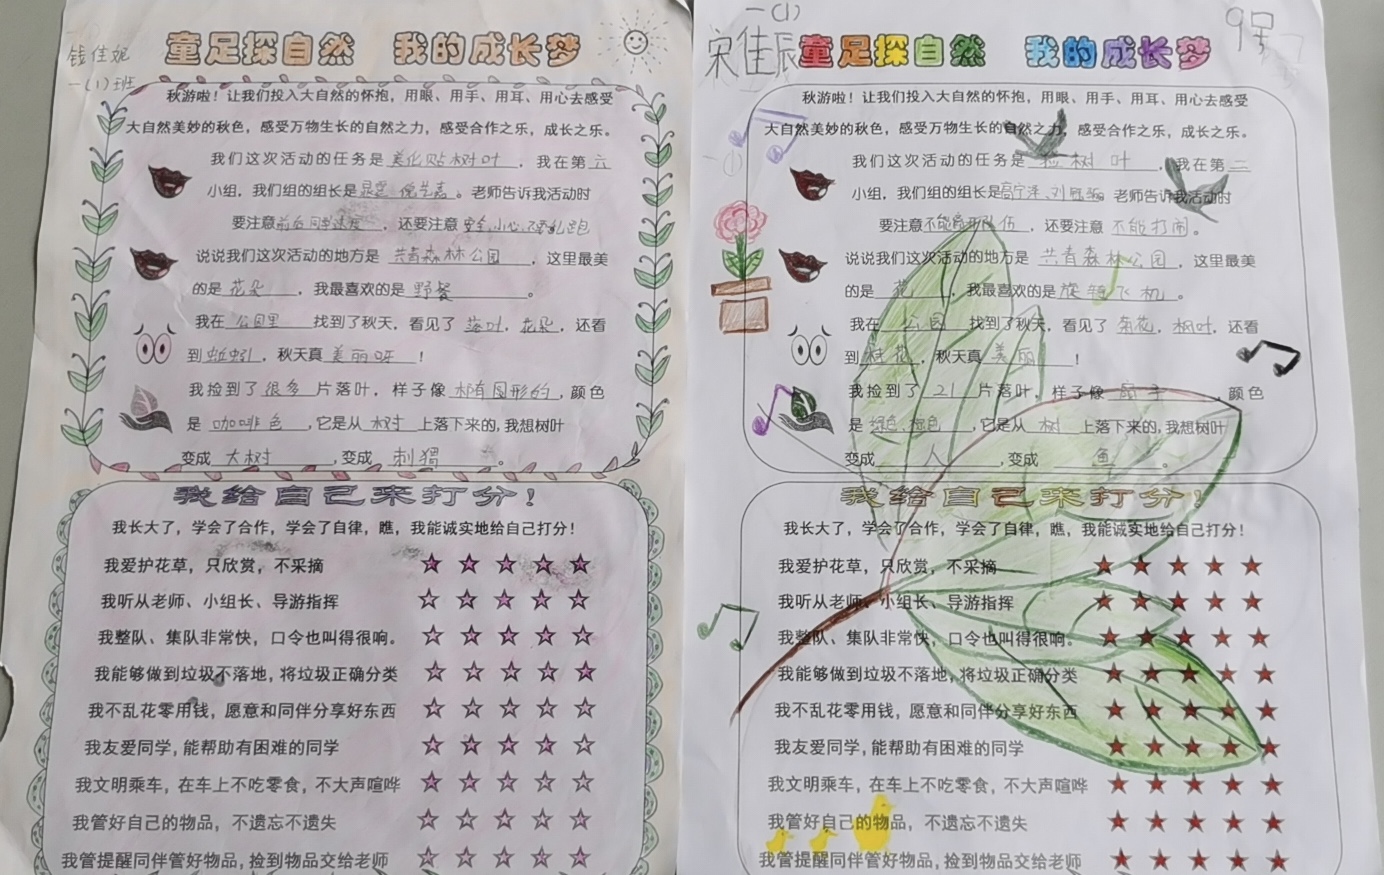 钱佳妮
一(1)班
童足探自然 我的成长梦
秋游啦！让我们投入大自然的怀抱，用眼、用手、用耳、用心去感受
大自然美妙的秋色，感受万物生长的自然之力，感受合作之乐，成长之乐。
我们这次活动的任务是美化贴树叶，我在第六
小组，我们组的组长是。老师告诉我活动时
要注意前后同学速度，还要注意安全,小心,不要乱跑
说说我们这次活动的地方是共青森林公园，这里最美
的是花朵，我最喜欢的是野餐。
我在公园里找到了秋天，看见了落叶，花朵，还看
到蚯蚓，秋天真美丽呀！
我捡到了很多片落叶，样子像椭圆形的，颜色
是咖啡色，它是从树上落下来的，我想树叶
变成大树，变成刺猬。
我给自己来打分！
我长大了，学会了合作，学会了自律，瞧，我能诚实地给自己打分！
我爱护花草，只欣赏，不采摘
我听从老师、小组长、导游指挥
我整队、集队非常快，口令也叫得很响。
我能够做到垃圾不落地，将垃圾正确分类
我不乱花零用钱，愿意和同伴分享好东西
我友爱同学，能帮助有困难的同学
我文明乘车，在车上不吃零食，不大声喧哗
我管好自己的物品，不遗忘不遗失
我管提醒同伴管好物品，捡到物品交给老师
一(1)
宋佳辰
9号
童足探自然 我的成长梦
秋游啦！让我们投入大自然的怀抱，用眼、用手、用耳、用心去感受
大自然美妙的秋色，感受万物生长的自然之力，感受合作之乐，成长之乐。
一(1)
我们这次活动的任务是捡树叶，我在第二
小组，我们组的组长是高宁泽、刘。老师告诉我活动时
要注意不能离开队伍，还要注意不能打闹。
说说我们这次活动的地方是共青森林公园，这里最美
的是花，我最喜欢的是旋转飞机。
我在公园找到了秋天，看见了菊花，枫叶，还看
到桂花，秋天真美丽！
我捡到了21片落叶，样子像扇子，颜色
是绿色、棕色，它是从树上落下来的，我想树叶
变成人，变成鱼。
我给自己来打分！
我长大了，学会了合作，学会了自律，瞧，我能诚实地给自己打分！
我爱护花草，只欣赏，不采摘
我听从老师、小组长、导游指挥
我整队、集队非常快，口令也叫得很响。
我能够做到垃圾不落地，将垃圾正确分类
我不乱花零用钱，愿意和同伴分享好东西
我友爱同学，能帮助有困难的同学
我文明乘车，在车上不吃零食，不大声喧哗
我管好自己的物品，不遗忘不遗失
我管提醒同伴管好物品，捡到物品交给老师